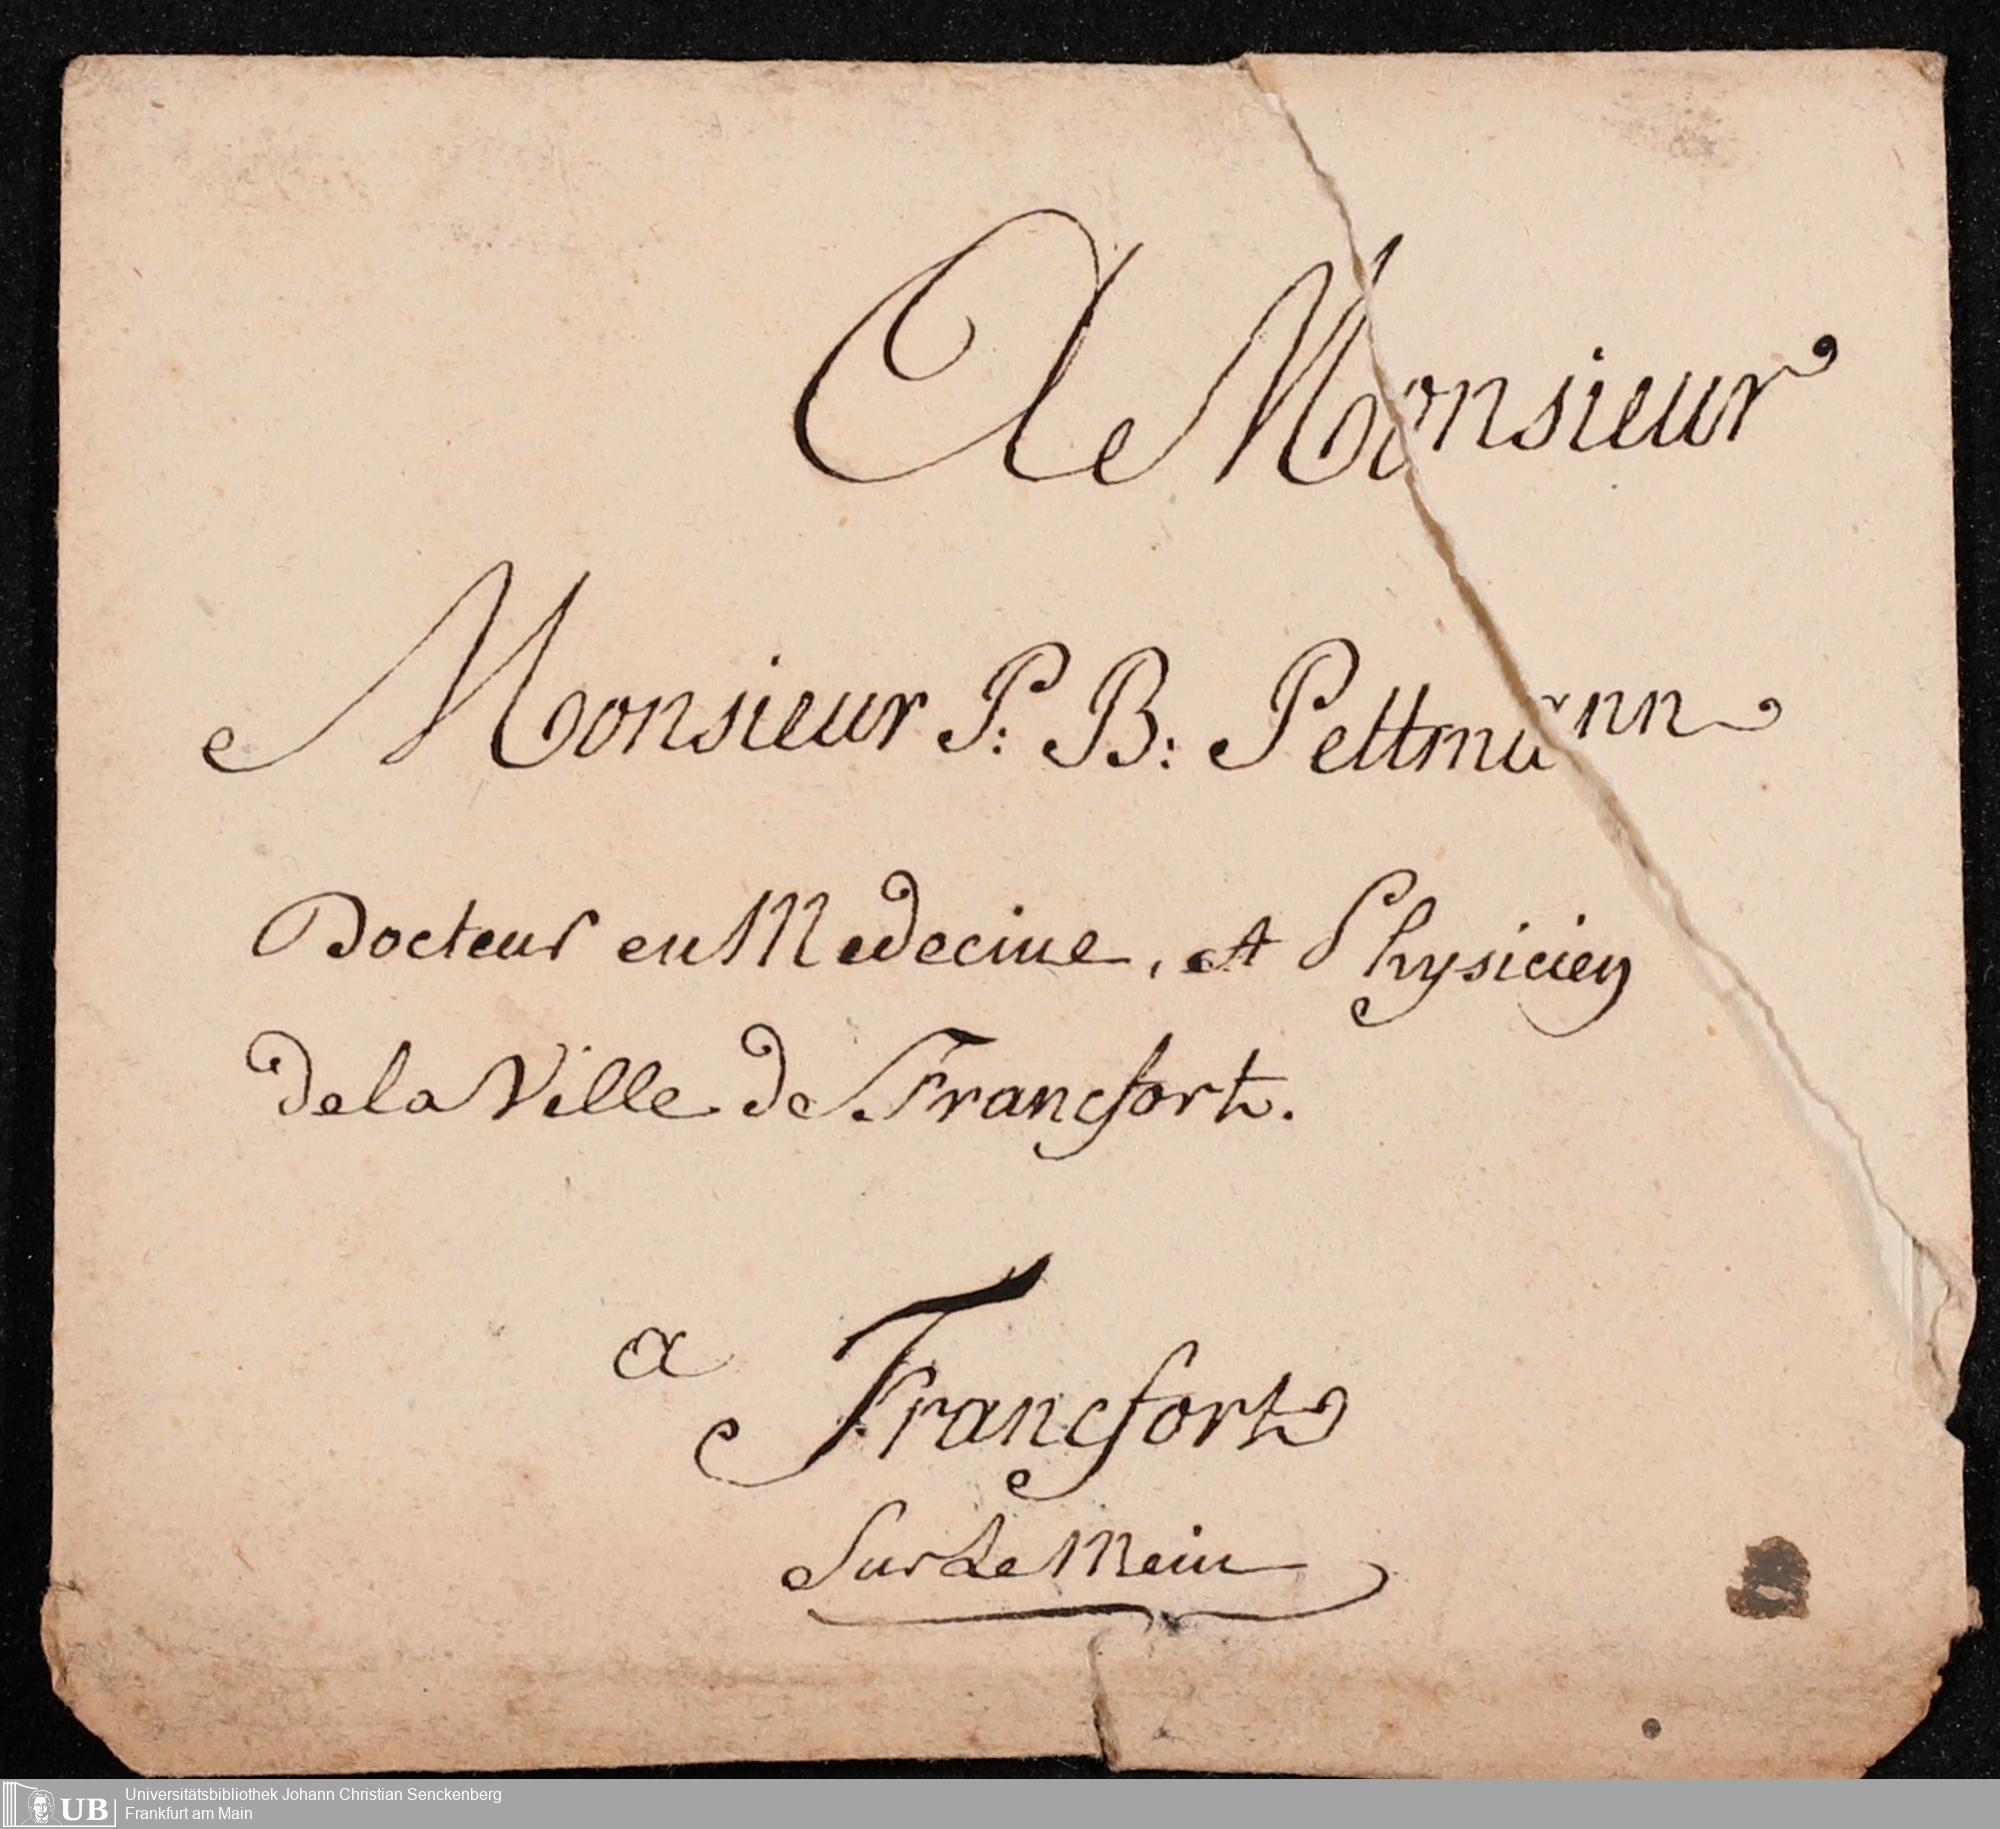 A Monsieur
Monsieur P: B: Pettmann
Docteur en Medecine, et Physicien
de la Ville de Francfort.
a Francfort
Sur Le Mein
UB
Universitätsbibliothek Johann Christian Senckenberg
Frankfurt am Main